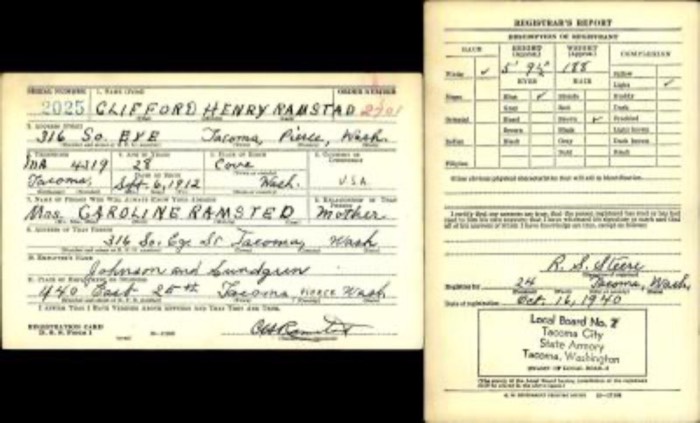 SERIAL NUMBER 1. NAME (Print) ORDER NUMBER
2025 CLIFFORD HENRY RAMSTAD
2. ADDRESS (Print)
316 So. EYE Tacoma, Pierce, Wash.
3. TELEPHONE 4. AGE IN YEARS 5. PLACE OF BIRTH 6. COUNTRY OF CITIZENSHIP
MA 4319 28 Cove
DATE OF BIRTH
Tacoma, Sept. 6, 1912 Wash. U.S.A.
7. NAME OF PERSON WHO WILL ALWAYS KNOW YOUR ADDRESS 8. RELATIONSHIP OF THAT PERSON
Mrs. CAROLINE RAMSTED Mother
9. ADDRESS OF THAT PERSON
316 So. Eye St Tacoma, Wash
10. EMPLOYER'S NAME
Johnson and Lundgren
11. PLACE OF EMPLOYMENT OR BUSINESS
440 East 25th Tacoma, PIERCE Wash
I AFFIRM THAT I HAVE VERIFIED ABOVE ANSWERS AND THAT THEY ARE TRUE.
REGISTRATION CARD
D. S. S. Form 1
REGISTRAR'S REPORT
DESCRIPTION OF REGISTRANT
RACE HEIGHT (Approx.) WEIGHT (Approx.) COMPLEXION
White ✓ 5' 9½" 188 Sallow
EYES HAIR Light ✓
Negro Blue ✓ Blonde Ruddy
Gray Red Dark
Oriental Hazel Brown ✓ Freckled
Brown Black Light brown
Indian Black Gray Dark brown
Bald Black
Filipino
Other obvious physical characteristic that will aid in identification
I certify that my answers are true; that the person registered has read or has had read to him his own answers; that I have witnessed his signature or mark and that all of his answers of which I have knowledge are true, except as follows:
R. S. Steere
Registrar for 24 Tacoma, Wash.
Date of registration Oct. 16, 1940
Local Board No. 7
Tacoma City
State Armory
Tacoma, Washington
(STAMP OF LOCAL BOARD)